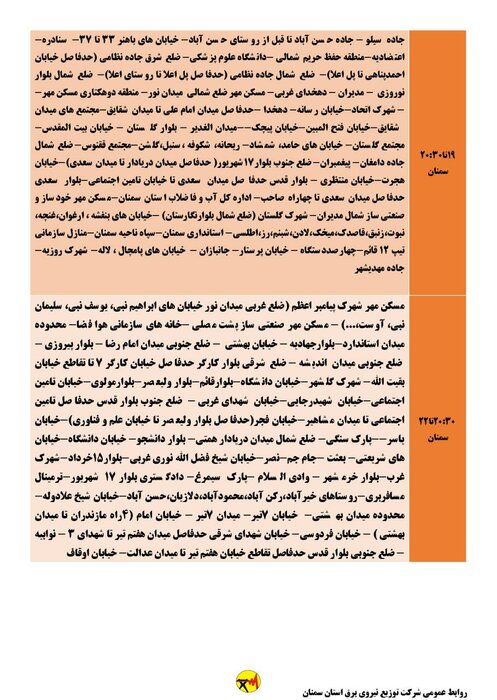 جاده سیلو – جاده حسن آباد تا قبل از روستای حسن آباد- خیابان های باهنر ۳۳ تا ۳۷- سنادره-
اعتضادیه-منطقه حفظ حریم شمالی -دانشگاه علوم پزشکی- ضلع شرق جاده نظامی (حدفاصل خیابان
احمدپناهی تا پل اعلا)- ضلع شمال جاده نظامی (حدفاصل پل اعلا تا روستای اعلا)- ضلع شمال بلوار
نوروزی – مدیران – دهخدای غربی- مسکن مهر ضلع شمالی میدان نور- منطقه دوهکتاری مسکن مهر-
– شهرک اتحاد-خیابان رسانه – دهخدا –حدفاصل میدان امام علی تا میدان شقایق-مجتمع های میدان
شقایق-خیابان فتح المبین-خیابان پیچک--میدان الغدیر – بلوار گلستان – خیابان بیت المقدس-
مجتمع گلستان- خیابان های حامد، شمشاد- ریحانه، شکوفه، سنبل، گلشن- مجتمع ققنوس- ضلع شمال
جاده دامغان – پیغمبران- ضلع جنوبی بلوار ۱۷شهریور( حدفاصل میدان دریادار تا میدان سعدی)-خیابان
هجرت-خیابان منتظری – بلوار قدس حدفاصل میدان سعدی تا خیابان تامین اجتماعی-بلوار سعدی
حدفاصل میدان سعدی تا چهاراه صاحب- اداره کل آب و فاضلاب استان سمنان-مسکن مهر خودساز و
صنعتی ساز شمال مدیران- شهرک گلستان (ضلع شمال بلوارنگارستان) –خیابان های بنفشه ، ارغوان، غنچه،
نبوت، زنبق، قاصدک، میخک، لادن، شبنم، رز، اطلسی- استانداری سمنان-سپاه ناحیه سمنان-منازل سازمانی
تیپ ۱۲ قائم-چهارصددستگاه – خیابان پرستار- جانبازان – خیابان های پامچال ، لاله- شهرک روزیه-
جاده مهدیشهر
۱۹تا۲۰:۳۰
سمنان
مسکن مهر شهرک پیامبر اعظم (ضلع غربی میدان نور خیابان های ابراهیم نبی، یوسف نبی، سلیمان
نبی، آوست،...) – مسکن مهر صنعتی ساز پشت مصلی -خانه های سازمانی هوا فضا- محدوده
میدان استاندارد-بلوارجهادیه – خیابان بهشتی – ضلع جنوبی میدان امام رضا – بلوار پیروزی –
ضلع جنوبی میدان اندیشه – ضلع شرقی بلوار کارگر حدفاصل خیابان کارگر ۷ تا تقاطع خیابان
بقیت الله – شهرک گلشهر- خیابان دانشگاه-بلوارقائم-بلوار ولیعصر-بلوارمولوی-خیابان تامین
اجتماعی- خیابان شهیدرجایی- خیابان شهدای غربی – ضلع جنوب بلوار قدس حدفاصل تامین
اجتماعی تا میدان مشاهیر- خیابان فجر(حدفاصل بلوار ولیعصر تا خیابان علم و فناوری)-خیابان
یاسر--پارک سنگی- ضلع شمال میدان دریادار همتی- بلوار دانشجو- خیابان دانشگاه-خیابان
های شریعتی- بعثت -جام جم-نصر-خیابان شیخ فضل الله نوری غربی-بلوار۱۵خرداد-شهرک
غرب-بلوار خرمشهر – وادی السلام –پارک سیمرغ- دادگستری بلوار ۱۷ شهریور-ترمینال
مسافربری-روستاهای خیرآباد،رکن آباد،محمودآباد،دلازیان،حسن آباد- خیابان شیخ علادوله-
محدوده میدان بهشتی- خیابان ۷تیر- میدان ۷تیر – خیابان امام (۴راه مازندران تا میدان
بهشتی ) – خیابان فردوسی- خیابان شهدای شرقی حدفاصل میدان هفتم تیر تا شهدای ۳ – نوابیه
– ضلع جنوبی بلوار قدس حدفاصل تقاطع خیابان هفتم تیر تا میدان عدالت- خیابان اوقاف
۲۰:۳۰تا۲۲
سمنان
روابط عمومی شرکت توزیع نیروی برق استان سمنان